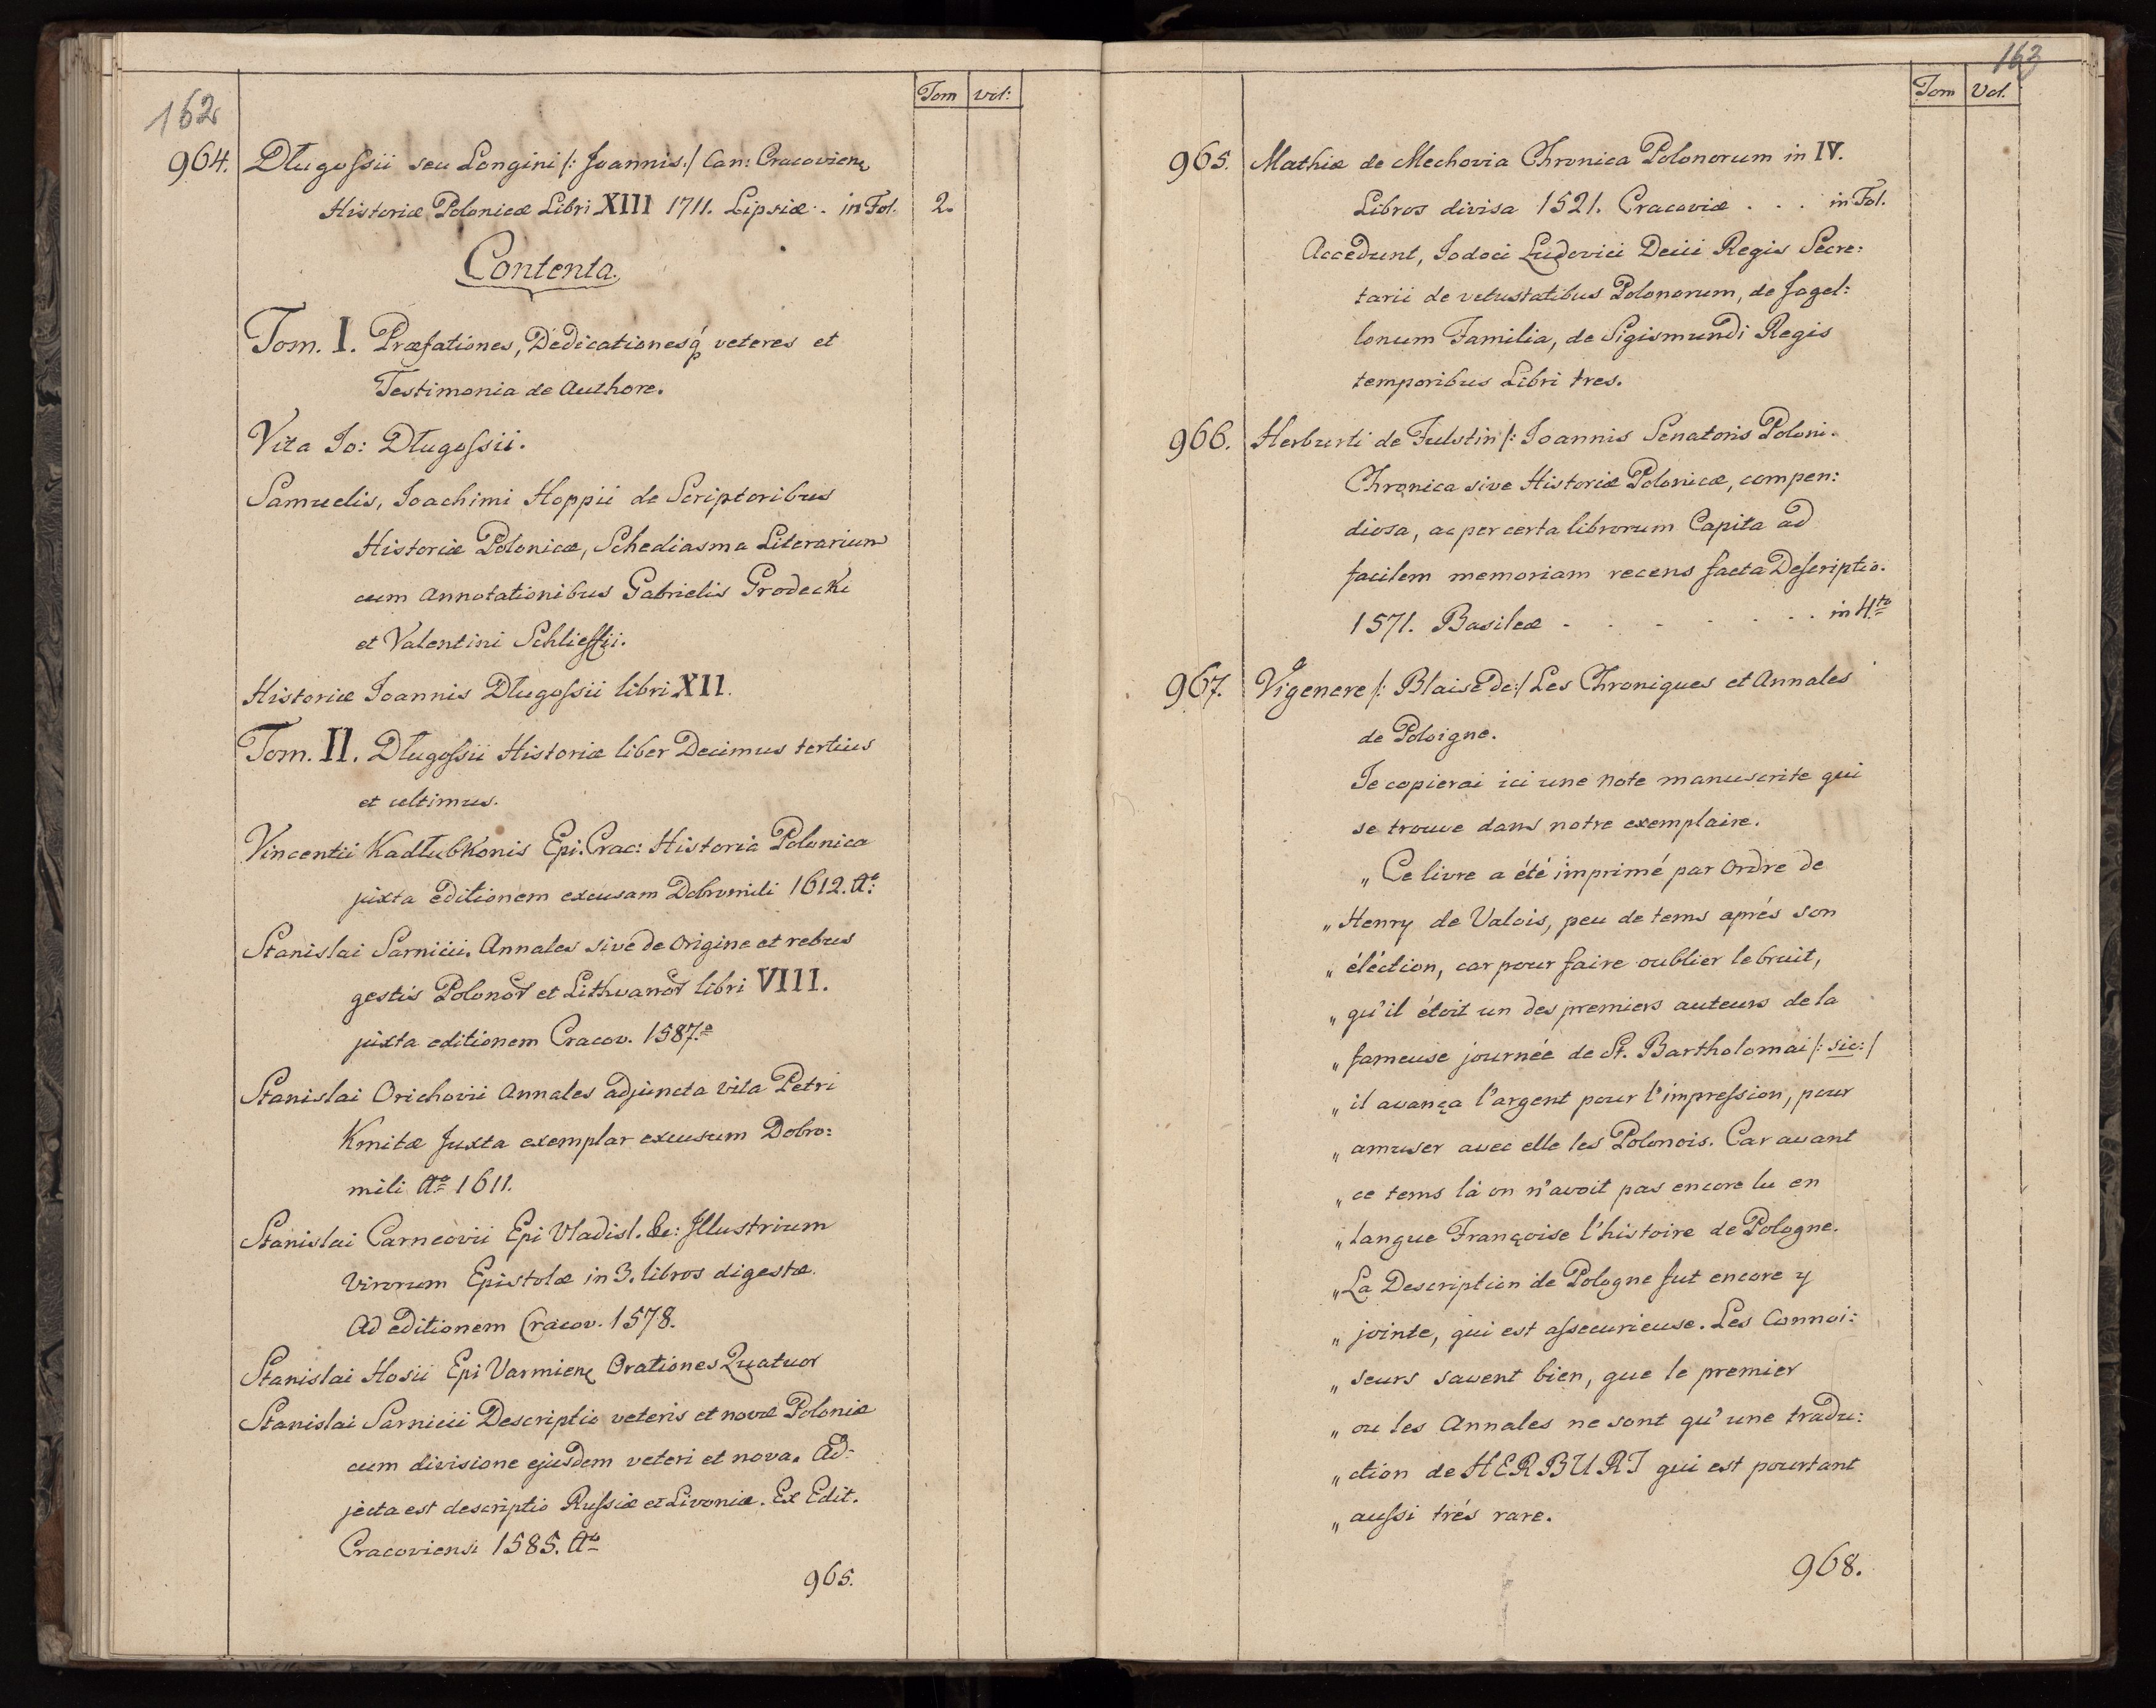 162
Tom
vol:
964.
Długoſsii seu Longini /: Joannis :/ Can: Cracovien
Historiæ Polonicæ Libri XIII 1711. Lipsiæ . in Fol.
2.
Contenta.
Tom. I. Præfationes, Dedicationesq́ veteres et
Testimonia de Authore.
Vita Jo: Długoſsii.
Samuelis, Joachimi Hoppii de Scriptoribus
Historiæ Polonicæ, Schediasma Literarium
cum Annotationibus Gabrielis Grodecki
et Valentini Schlieffii.
Historiæ Joannis Długoſsii libri XII.
Tom. II. Długoſsii Historiæ liber Decimus tertius
et ultimus.
Vincentii Kadłubkonis Epi. Crac: Historia Polonica
juxta editionem excusam Dobromili 1612. Aº:
Stanislai Sarnicii. Annales sive de Origine et rebus
gestis Polonor et Lithuanor libri VIII.
juxta editionem Cracov. 1587.º
Stanislai Orichovii Annales adjuncta vita Petri
Kmitæ Juxta exemplar excusum Dobro:
mili Aº 1611.
Stanislai Carncovii Epi Vladisl. &c: Illustrium
Virorum Epistolæ in 3. libros digestæ.
Ad editionem Cracov. 1578.
Stanislai Hosii Epi Varmien Orationes Quatuor
Stanislai Sarnicii Descriptio veteris et novæ Poloniæ
cum divisione ejusdem veteri et nova. Ad:
jecta est descriptio Ruſsiæ et Livoniæ. Ex Edit.
Cracoviensi 1585. Aº
965.
163
Tom
Vol.
965.
Mathiæ de Mechovia Chronica Polonorum in IV.
Libros divisa 1521. Cracoviæ . . . in Fol.
Accedunt, Jodoci Ludovici Decii Regis Secre:
tarii de vetustatibus Polonorum, de Jagel:
lonum Familia, de Sigismundi Regis
temporibus Libri tres.
966.
Herburti de Fulstin /: Joannis Senatoris Poloni.
Chronica sive Historiæ Polonicæ, compen:
diosa, ac per certa librorum Capita ad
facilem memoriam recens facta Deſcriptio.
1571. Basileæ . . . . . . . in 4to
967.
Vigenere /: Blaise de :/ Les Chroniques et Annales
de Poloigne.
Je copierai ici une note manuscrite qui
se trouve dans notre exemplaire.
„ Ce livre a été imprimé par Ordre de
„ Henry de Valois, peu de tems aprés son
„ éléction, car pour faire oublier le bruit,
„ qu'il étoit un des premiers auteurs de la
„ fameuse journée de St. Bartholomai /: sic :/
„ il avança l'argent pour l'impreſsion, pour
„ amuser avec elle les Polonois. Car avant
„ ce tems là on n'avoit pas encore lu en
„ langue Françoise l'histoire de Pologne.
„ La Description de Pologne fut encore y
„ jointe, qui est aſsecurieuse. Les Connoi:
„ seurs savent bien, que le premier
„ ou les Annales ne sont qu'une tradu:
„ ction de HERBURT qui est pourtant
„ auſsi trés rare.
968.